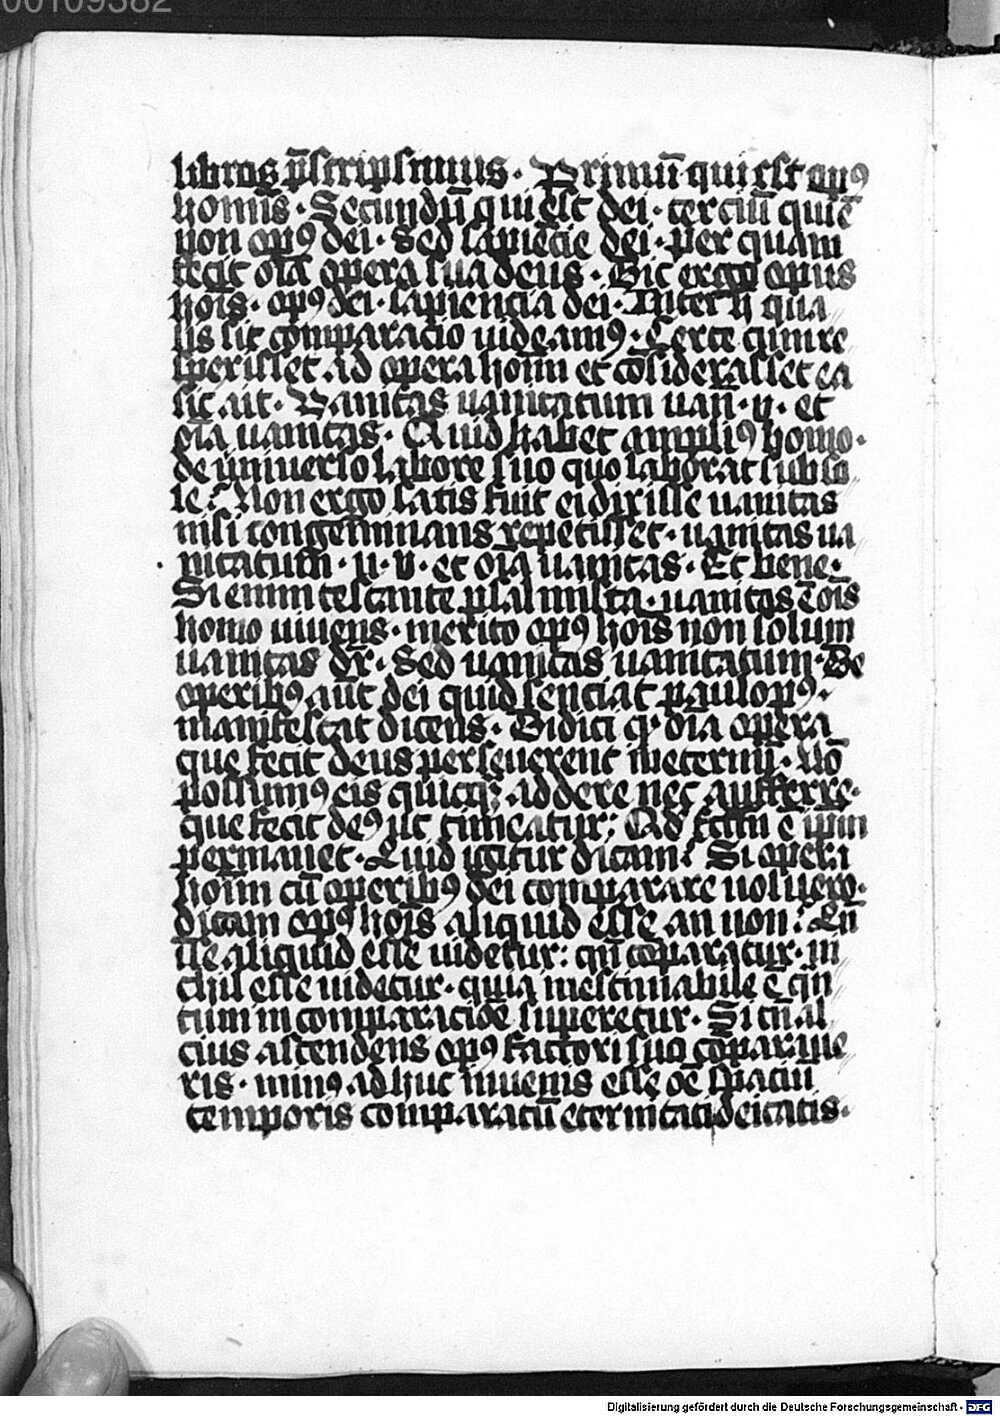 00109382
libros p̄scripsimus. Primū qui est opꝰ
hoīnis. Secundū qui est dei. terciū qui ē
non opꝰ dei. sed sapiēcie dei. per quam
fecit oīa opera sua deus. Sic ergo opus
hoīs. opꝰ dei. sapiencia dei. Inter h̄ qua
lis sit comparacio videamꝰ. Certe cum re
sperisset ad opera hoīm et cōsiderasset ea
sic ait. Vanitas uanitatum uan. v. et
oīa uanitas. Quid habet ampliꝰ homo.
de vniuerso labore suo quo laborat sub so
le? Non ergo satis fuit ei dixisse uanitas
nisi congeminans repetisset. uanitas ua
nitatum. v. v. et oīa uanitas. Et bene.
Si enim testante psalmista. uanitas ē oīs
homo uiuens. merito opꝰ hoīs non solum
uanitas dr̄. Sed uanitas uanitatum. De
operibꝰ aūt dei quid senciat paulo pꝰ.
manifestat dicens. Didici qꝫ oīa opera
que fecit deus perseuerent in eternū. Nō
possumꝰ eis quicqꝫ addere nec aufferre.
que fecit deꝰ ut timeatur; Qd̄ factū ē ipm̄
permanet. Quid igitur dicam? Si opera
hoīm cū operibꝰ dei comparare uoluero.
dicam opꝰ hoīs aliquid esse an non? Cū
sse aliquid esse uidetur: qn̄ cōparatur. ni
chil esse uidetur. quia inestimabile ē qn̄
tum in comparacōe superetur. Si cū al
cius ascendens opꝰ factori suo cōparaue
ris. minꝰ adhuc inuenis esse oē spaciū
temporis comparatū eternitati deitatis.
Digitalisierung gefördert durch die Deutsche Forschungsgemeinschaft - DFG